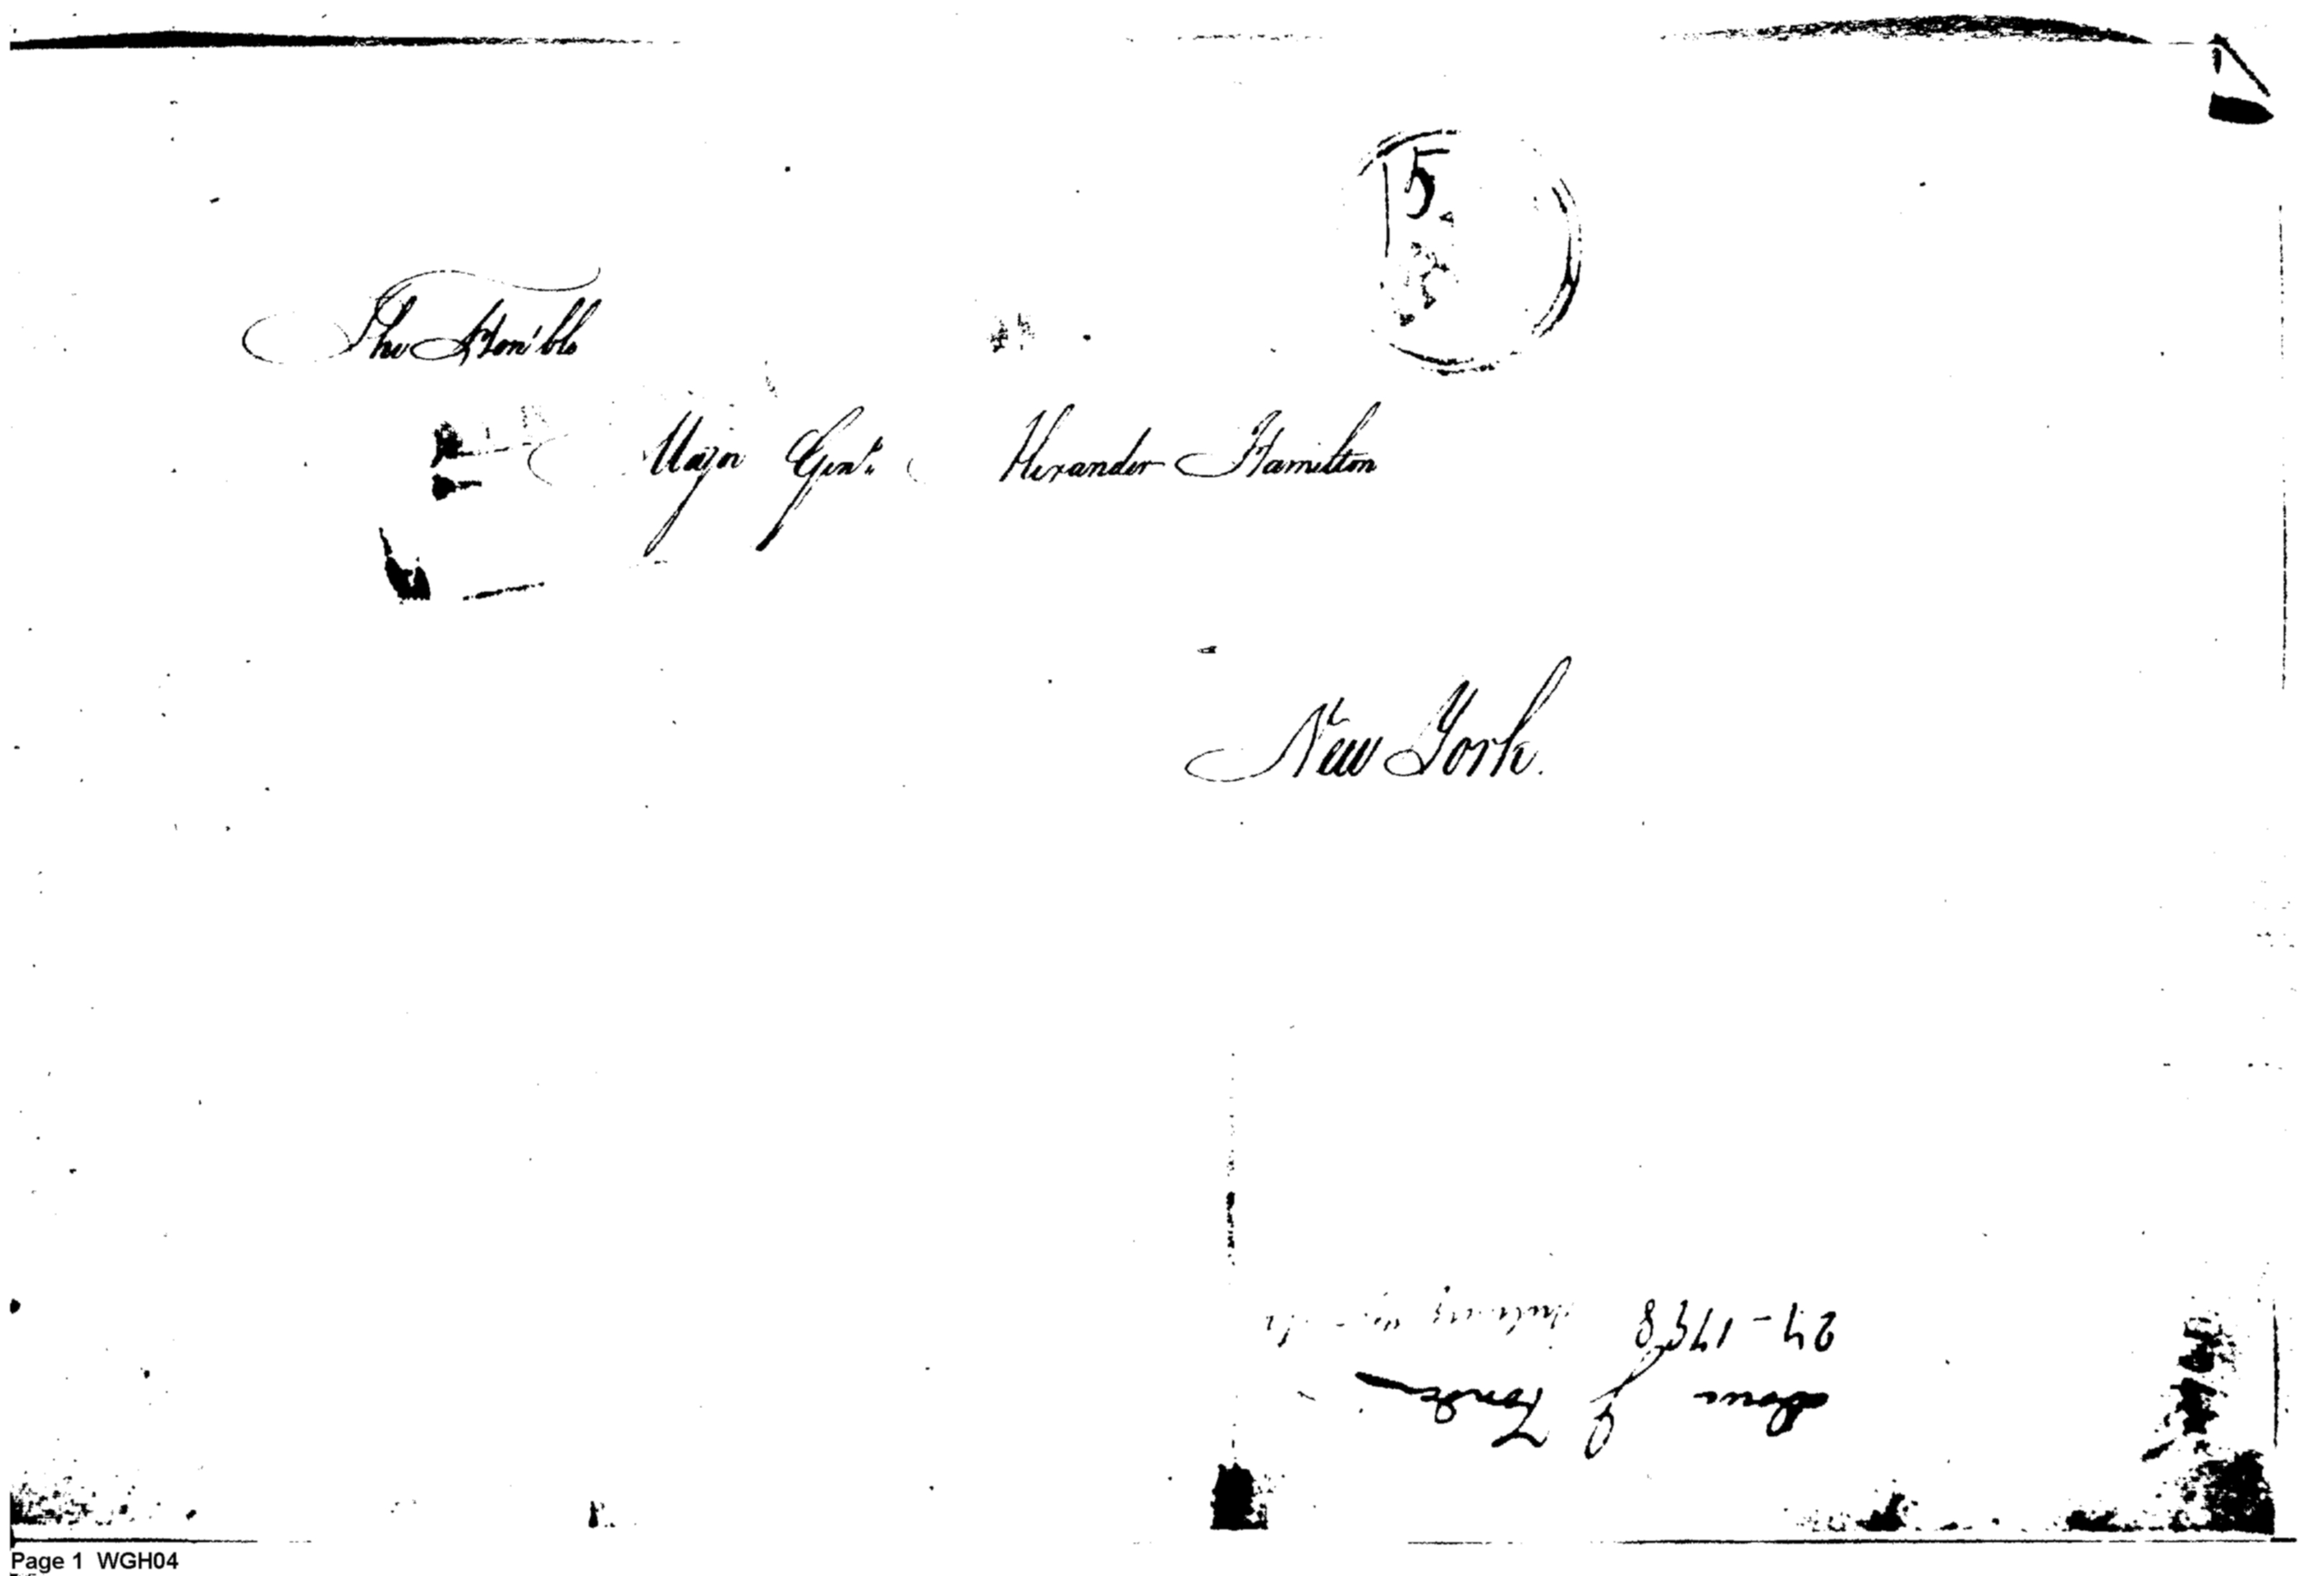 The Hon'ble
Major Genl. Alexander Hamilton
New York.
15
24 - 1798
Page 1 WGH04